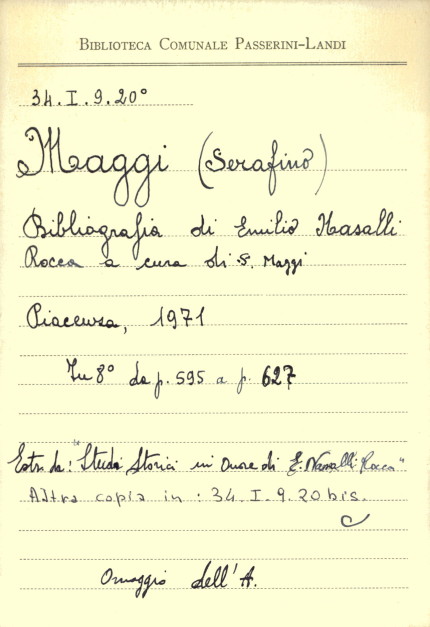 BIBLIOTECA COMUNALE PASSERINI-LANDI
34.I.9.20°
Maggi (Serafino)
Bibliografia di Emilio Nasalli
Rocca a cura di S. Maggi
Piacenza, 1971
In 8° da p. 595 a p. 627
Estr. da: "Studi Storici in Onore di E. Nasalli Rocca"
Altra copia in: 34.I.9.20 bis.
Omaggio dell'A.